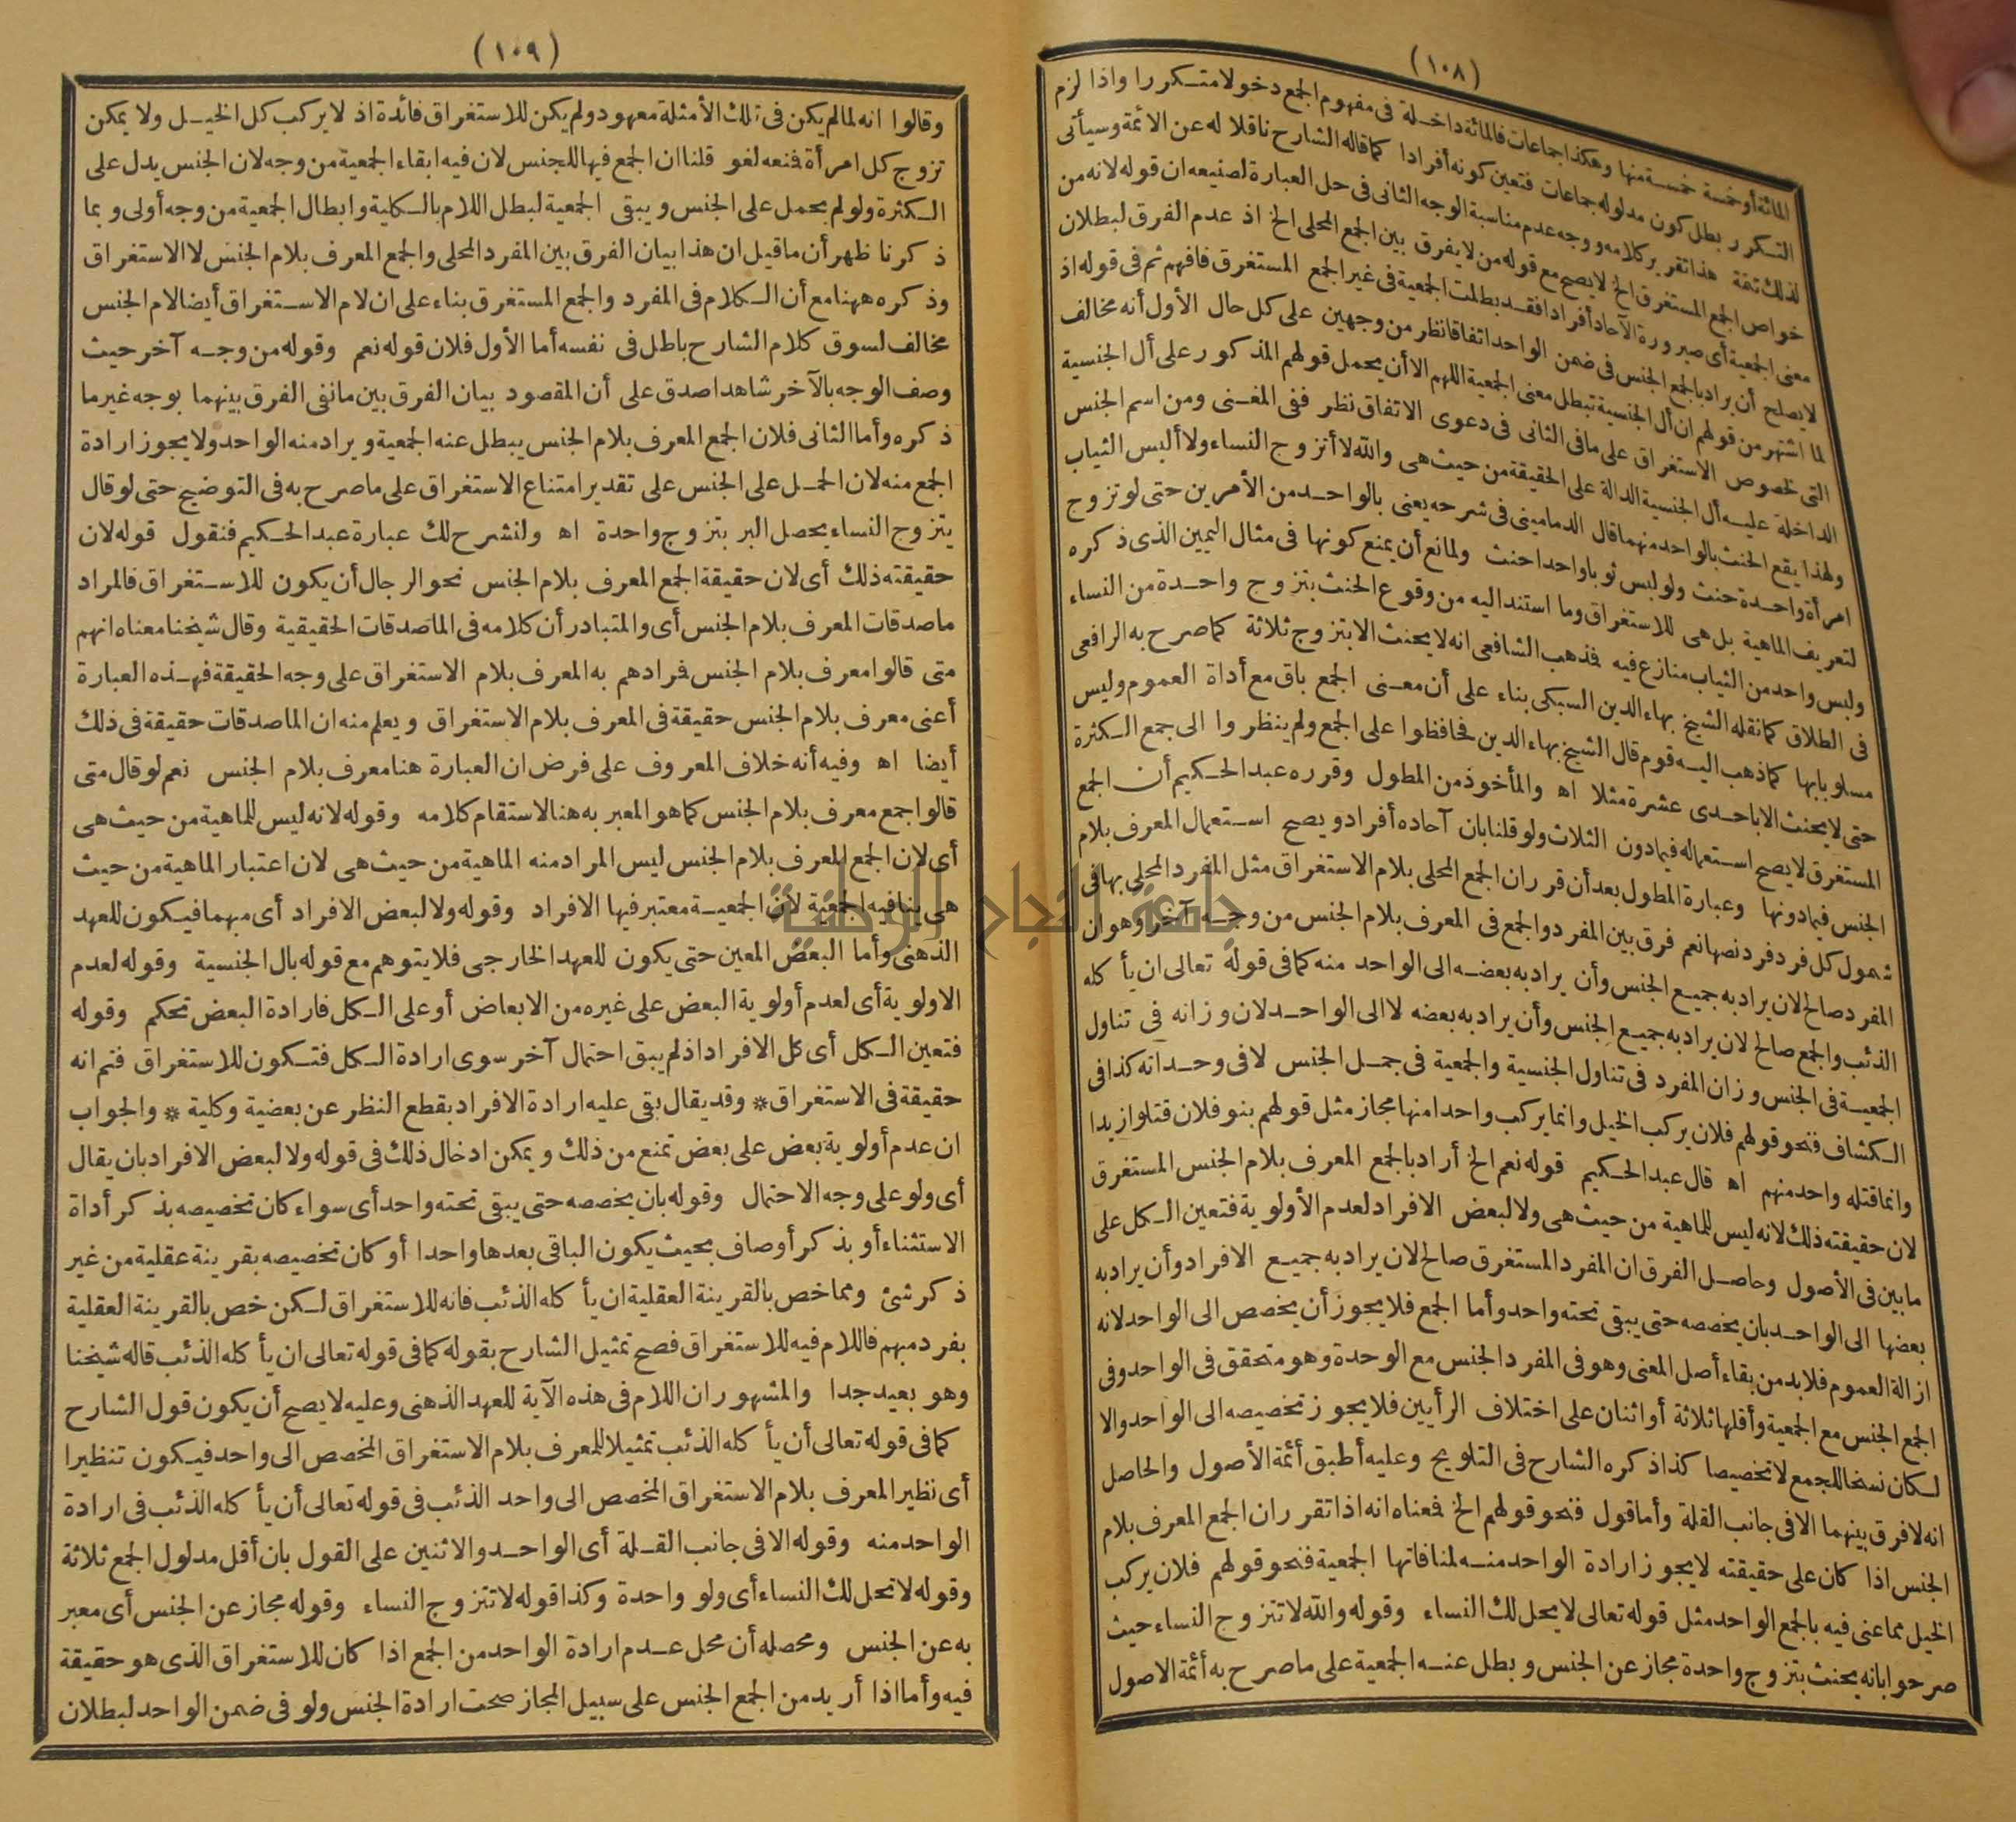 (١٠٨)
المائة أو خمسة خمسة منها وهكذا جماعات فالمائة داخلة فى مفهوم الجمع دخولا متكررا واذا لزم
التكرر بطل كون مدلوله جماعات فتعين كونه أفرادا كما قاله الشارح ناقلا له عن الائمة وسيأتى
لذلك تتمة هذا تقرير كلامه ووجه عدم مناسبة الوجه الثانى فى حل العبارة لصنيعه ان قوله لانه من
خواص الجمع المستغرق الخ لا يصح مع قوله من لا يفرق بين الجمع المحلى الخ اذ عدم الفرق لبطلان
معنى الجمعية أى صيرورة الآحاد أفرادا فقد بطلت الجمعية فى غير الجمع المستغرق فافهم ثم فى قوله اذ
لا يصلح أن يراد بالجمع الجنس فى ضمن الواحد اتفاقا نظر من وجهين على كل حال الأول أنه مخالف
لما اشتهر من قولهم ان أل الجنسية تبطل معنى الجمعية اللهم الا أن يحمل قولهم المذكور على أل الجنسية
التى لخصوص الاستغراق على ما فى الثانى فى دعوى الاتفاق نظر ففى المغنى ومن اسم الجنس
الداخلة عليه أل الجنسية الدالة على الحقيقة من حيث هى والله لا أتزوج النساء ولا ألبس الثياب
ولهذا يقع الحنث بالواحد منهما قال الدمامينى فى شرحه يعنى بالواحد من الأمرين حتى لو تزوج
امرأة واحدة حنث ولو لبس ثوبا واحدا حنث ولمانع أن يمنع كونها فى مثال اليمين الذى ذكره
لتعريف الماهية بل هى للاستغراق وما استند اليه من وقوع الحنث بتزوج واحدة من النساء
ولبس واحد من الثياب منازع فيه فذهب الشافعى انه لا يحنث الا بتزوج ثلاثة كما صرح به الرافعى
فى الطلاق كما نقله الشيخ بهاء الدين السبكى بناء على أن معنى الجمع باق مع أداة العموم وليس
مسلوبا بها كما ذهب اليه قوم قال الشيخ بهاء الدين فحافظوا على الجمع ولم ينظروا الى جمع الكثرة
حتى لا يحنث الا باحدى عشرة مثلا اه والمأخوذ من المطول وقرره عبد الحكيم أن الجمع
المستغرق لا يصح استعماله فيما دون الثلاث ولو قلنا بان آحاده أفراد ويصح استعمال المعرف بلام
الجنس فيما دونها وعبارة المطول بعد أن قرر ان الجمع المحلى بلام الاستغراق مثل المفرد المحلى بها فى
شمول كل فرد فرد نصها نعم فرق بين المفرد والجمع فى المعرف بلام الجنس من وجه آخر وهو ان
المفرد صالح لان يراد به جميع الجنس وأن يراد به بعضه الى الواحد منه كما فى قوله تعالى ان يأكله
الذئب والجمع صالح لان يراد به جميع الجنس وأن يراد به بعضه لا الى الواحد لان وزانه فى تناول
الجمعية فى الجنس وزان المفرد فى تناول الجنسية والجمعية فى جمل الجنس لا فى وحدانه كذا فى
الكشاف فنحو قولهم فلان يركب الخيل وانما يركب واحدا منها مجاز مثل قولهم بنو فلان قتلوا زيدا
وانما قتله واحد منهم اه قال عبد الحكيم قوله نعم الخ أراد بالجمع المعرف بلام الجنس المستغرق
لان حقيقته ذلك لانه ليس للماهية من حيث هى ولا لبعض الافراد لعدم الأولوية فتعين الكل على
ما بين فى الأصول وحاصل الفرق ان المفرد المستغرق صالح لان يراد به جميع الافراد وأن يراد به
بعضها الى الواحد بان يخصصه حتى يبقى تحته واحد وأما الجمع فلا يجوز أن يخصص الى الواحد لانه
ازالة العموم فلا بد من بقاء أصل المعنى وهو فى المفرد الجنس مع الوحدة وهو متحقق فى الواحد وفى
الجمع الجنس مع الجمعية وأقلها ثلاثة أو اثنان على اختلاف الرأيين فلا يجوز تخصيصه الى الواحد والا
لكان نسخا للجمع لا تخصيصا كذا ذكره الشارح فى التلويح وعليه أطبق أئمة الأصول والحاصل
انه لا فرق بينهما الا فى جانب القلة وأما قول فنحو قولهم الخ فمعناه انه اذا تقرر ان الجمع المعرف بلام
الجنس اذا كان على حقيقته لا يجوز ارادة الواحد منه لمنافاتها الجمعية فنحو قولهم فلان يركب
الخيل مما عنى فيه بالجمع الواحد مثل قوله تعالى لا يحل لك النساء وقوله والله لا تتزوج النساء حيث
صرحوا بانه يحنث بتزوج واحدة مجاز عن الجنس وبطل عنه الجمعية على ما صرح به أئمة الاصول
(١٠٩)
وقالوا انه لما لم يكن فى تلك الأمثلة معهود ولم يكن للاستغراق فائدة اذ لا يركب كل الخيل ولا يمكن
تزوج كل امرأة فمنعه لغو قلنا ان الجمع فيها للجنس لان فيه ابقاء الجمعية من وجه لان الجنس يدل على
الكثرة ولو لم يحمل على الجنس ويبقى الجمعية لبطل اللام بالكلية وابطال الجمعية من وجه أولى وبما
ذكرنا ظهر أن ما قيل ان هذا بيان الفرق بين المفرد المحلى والجمع المعرف بلام الجنس لا الاستغراق
وذكره ههنا مع أن الكلام فى المفرد والجمع المستغرق بناء على ان لام الاستغراق أيضا لام الجنس
مخالف لسوق كلام الشارح باطل فى نفسه أما الأول فلان قوله نعم وقوله من وجه آخر حيث
وصف الوجه بالآخر شاهدا صدق على أن المقصود بيان الفرق بين ما نفى الفرق بينهما بوجه غير ما
ذكره وأما الثانى فلان الجمع المعرف بلام الجنس يبطل عنه الجمعية ويراد منه الواحد ولا يجوز ارادة
الجمع منه لان الحمل على الجنس على تقدير امتناع الاستغراق على ما صرح به فى التوضيح حتى لو قال
يتزوج النساء يحصل البر بتزوج واحدة اه ولنشرح لك عبارة عبد الحكيم فنقول قوله لان
حقيقته ذلك أى لان حقيقة الجمع المعرف بلام الجنس نحو الرجال أن يكون للاستغراق فالمراد
ماصدقات المعرف بلام الجنس أى والمتبادر أن كلامه فى الماصدقات الحقيقية وقال شيخنا معناه انهم
متى قالوا معرف بلام الجنس فرادهم به المعرف بلام الاستغراق على وجه الحقيقة فهذه العبارة
أعنى معرف بلام الجنس حقيقة فى المعرف بلام الاستغراق ويعلم منه ان الماصدقات حقيقة فى ذلك
أيضا اه وفيه أنه خلاف المعروف على فرض ان العبارة هنا معرف بلام الجنس نعم لو قال متى
قالوا جمع معرف بلام الجنس كما هو المعبر به هنا لاستقام كلامه وقوله لانه ليس للماهية من حيث هى
أى لان الجمع المعرف بلام الجنس ليس المراد منه الماهية من حيث هى لان اعتبار الماهية من حيث
هى ينافيه الجمعية لان الجمعية معتبر فيها الافراد وقوله ولا لبعض الافراد أى مبهما فيكون للعهد
الذهنى وأما البعض المعين حتى يكون للعهد الخارجى فلا يتوهم مع قوله بال الجنسية وقوله لعدم
الاولوية أى لعدم أولوية البعض على غيره من الابعاض أو على الكل فارادة البعض تحكم وقوله
فتعين الكل أى كل الافراد اذ لم يبق احتمال آخر سوى ارادة الكل فتكون للاستغراق فتم انه
حقيقة فى الاستغراق * وقد يقال بقى عليه ارادة الافراد بقطع النظر عن بعضية وكلية * والجواب
ان عدم أولوية بعض على بعض تمنع من ذلك ويمكن ادخال ذلك فى قوله ولا لبعض الافراد بان يقال
أى ولو على وجه الاحتمال وقوله بان يخصصه حتى يبقى تحته واحد أى سواء كان تخصيصه بذكر أداة
الاستثناء أو بذكر أوصاف بحيث يكون الباقى بعدها واحدا أو كان تخصيصه بقرينة عقلية من غير
ذكر شئ ومما خص بالقرينة العقلية ان يأكله الذئب فانه للاستغراق لكن خص بالقرينة العقلية
بفرد مبهم فاللام فيه للاستغراق فصح تمثيل الشارح بقوله كما فى قوله تعالى ان يأكله الذئب قاله شيخنا
وهو بعيد جدا والمشهور ان اللام فى هذه الآية للعهد الذهنى وعليه لا يصح أن يكون قول الشارح
كما فى قوله تعالى أن يأكله الذئب تمثيلا للمعرف بلام الاستغراق المخصص الى واحد فيكون تنظيرا
أى نظير المعرف بلام الاستغراق المخصص الى واحد الذئب فى قوله تعالى أن يأكله الذئب فى ارادة
الواحد منه وقوله الا فى جانب القلة أى الواحد والاثنين على القول بان أقل مدلول الجمع ثلاثة
وقوله لا تحل لك النساء أى ولو واحدة وكذا قوله لا تتزوج النساء وقوله مجاز عن الجنس أى معبر
به عن الجنس ومحصله أن محل عدم ارادة الواحد من الجمع اذا كان للاستغراق الذى هو حقيقة
فيه وأما اذا أريد من الجمع الجنس على سبيل المجاز صحت ارادة الجنس ولو فى ضمن الواحد لبطلان
جامعة النجاح الوطنية